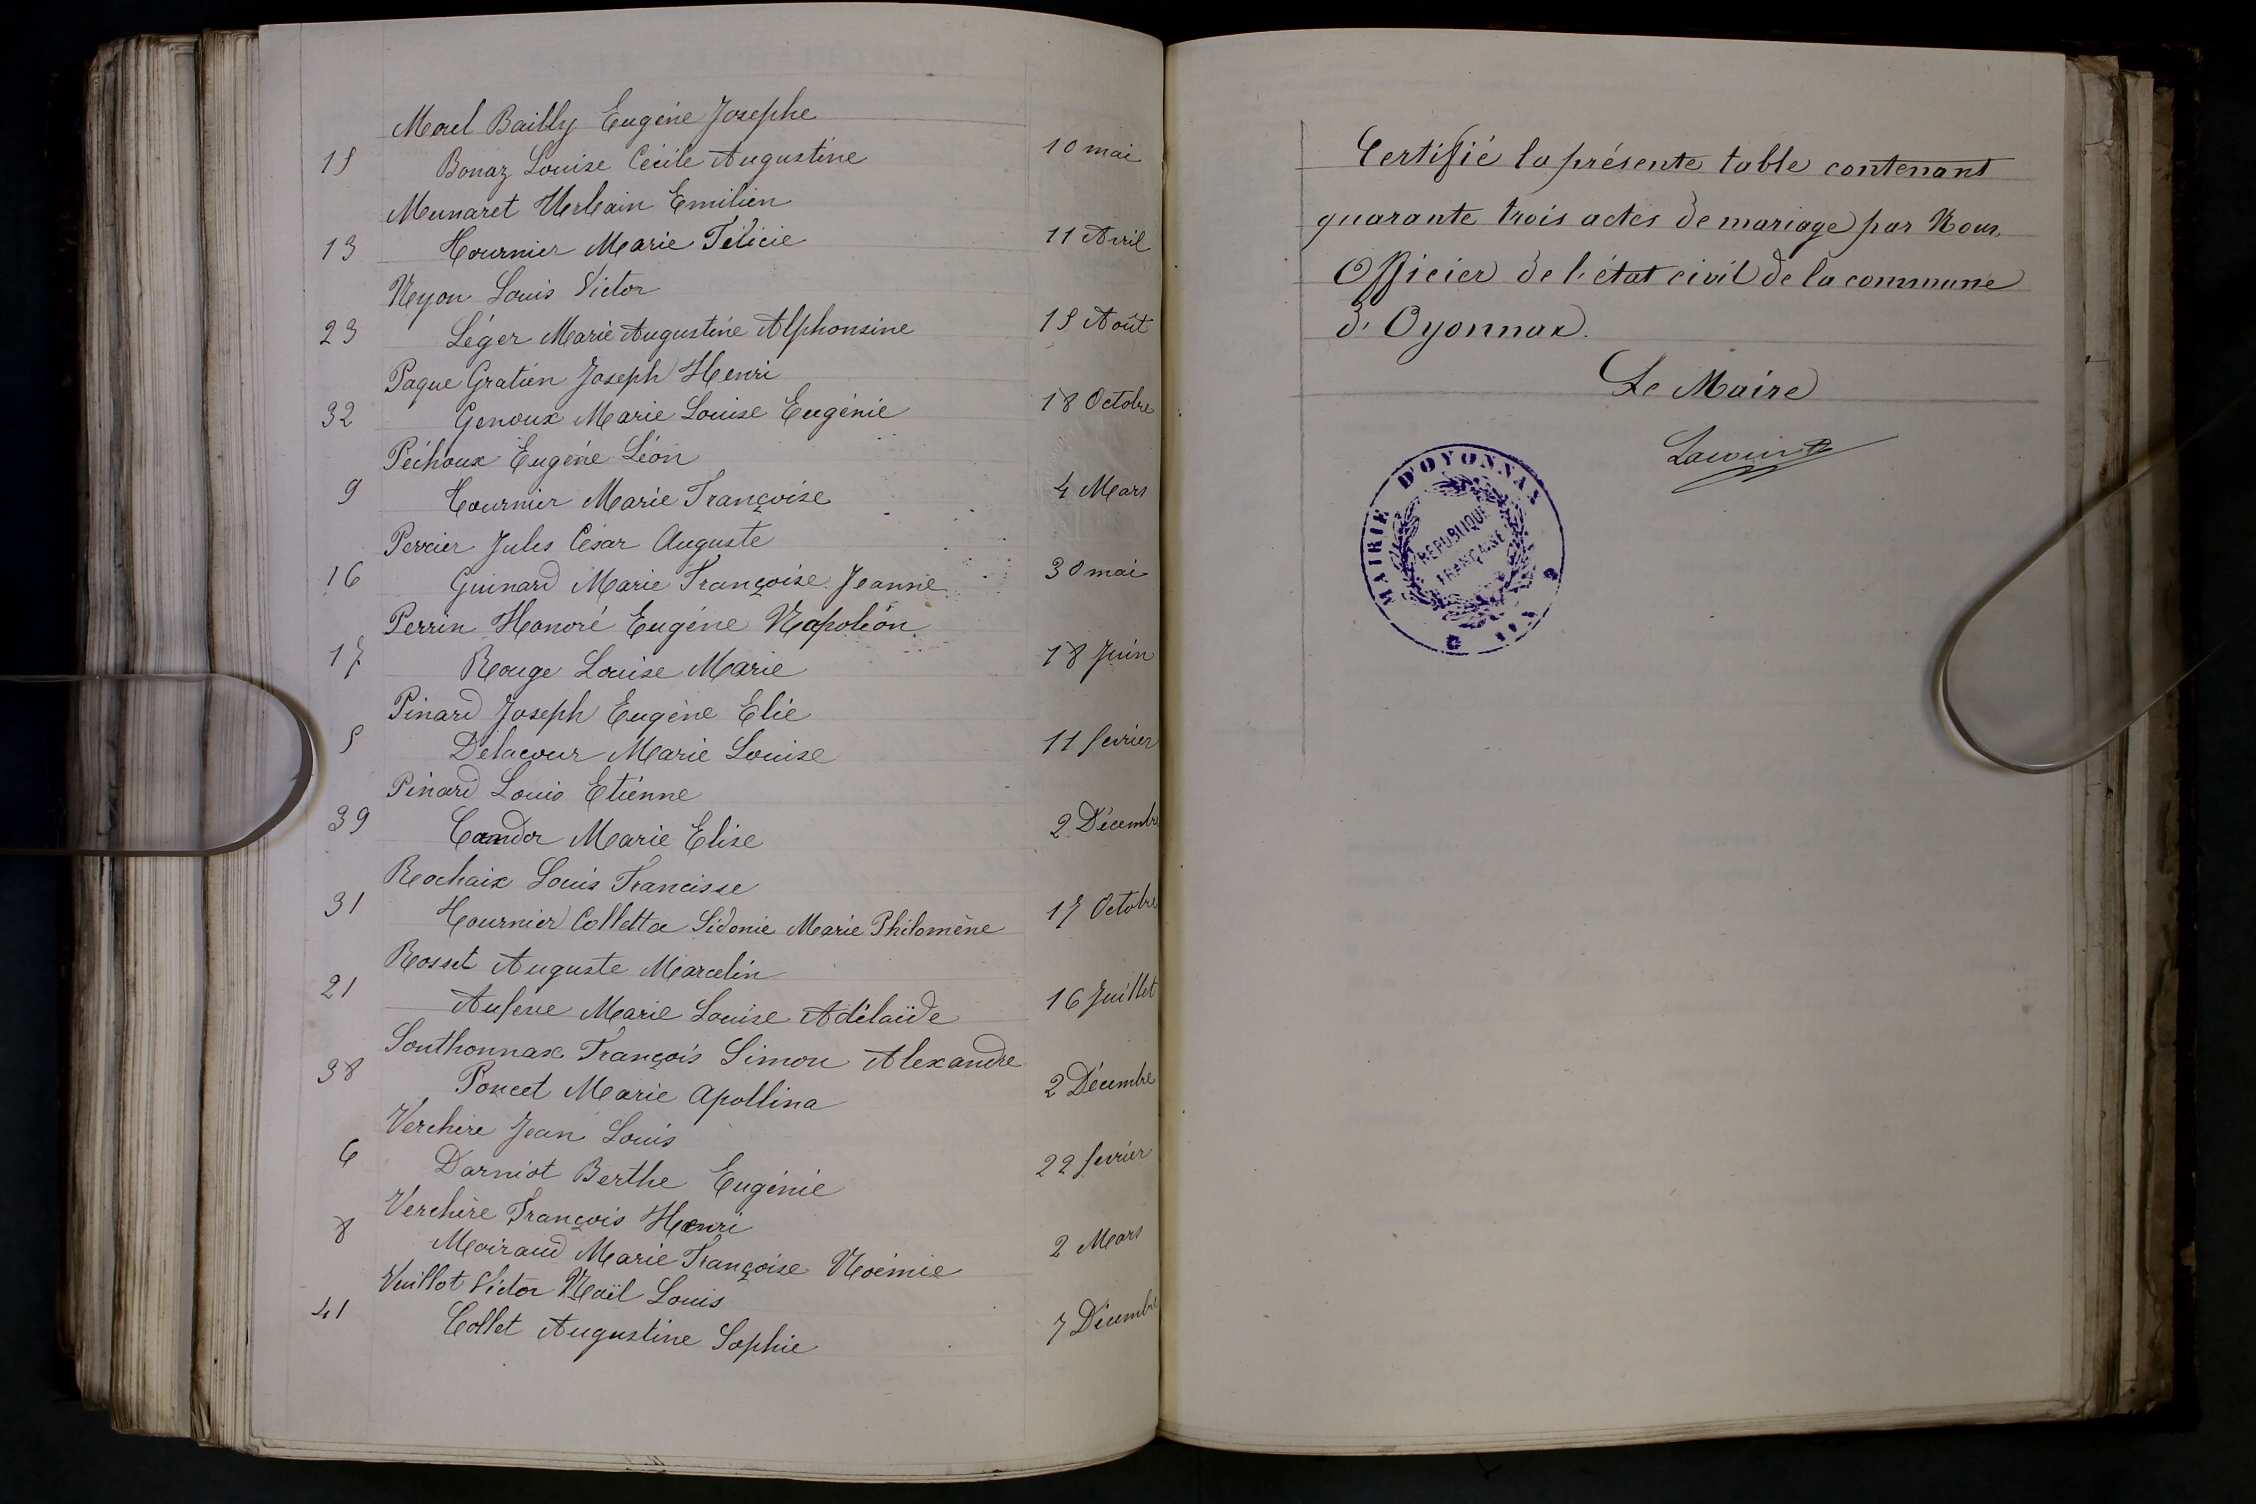 Morel Bailly Eugène Josephe
15 Bonaz Louise Cécile Augustine 10 mai
Munaret Urbain Emilien
13 Hournier Marie Félicie 11 Avril
Neyon Louis Victor
23 Léger Marie Augustine Alphonsine 15 Août
Paque Gratien Joseph Henri
32 Genoux Marie Louise Eugénie 18 Octobre
Péchoux Eugène Léon
9 Hournier Marie Françoise 4 Mars
Perrier Jules César Auguste
16 Guinard Marie Françoise Jeanne 30 mai
Perrin Honoré Eugène Napoléon
17 Rouge Louise Marie 18 Juin
Pinard Joseph Eugène Elie
5 Delacour Marie Louise 11 fevrier
Pinard Louis Etienne
39 Candor Marie Elise 2 Décembre
Rochaix Louis Francisse
31 Hournier Colletta Sidonie Marie Philomène 17 Octobre
Rosset Auguste Marcelin
21 Marie Louise Adélaïde 16 Juillet
Southonnax François Simon Alexandre
38 Poncet Marie Apollina 2 Décembre
Verchère Jean Louis
6 Darniot Berthe Eugénie 22 fevrier
Verchère François Henri
8 Moiraud Marie Françoise Noémie 2 Mars
Vuillot Victor Naël Louis
41 Collet Augustine Sophie 7 Décembre
Certifié la présente table contenant
quarante trois actes de mariage par Nous,
Officier de l'état civil de la commune
d'Oyonnax.
Le Maire
MAIRIE D'OYONNAX
REPUBLIQUE
FRANÇAISE
AIN